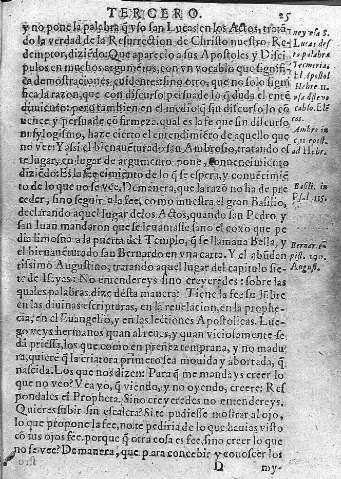 TERCERO. 25
y no pone la palabra q̃ vſo ſan Lucas en los Actos, tratã
do la verdad de la Reſurrection de Chriſto nueſtro Re-
demptor, diziẽdo: Que aparecio a sus Apoſtoles y Diſci
pulos en muchos argumentos, con vn vocablo que ſignifi
ca demoſtraciones euidentes: ſino otro, que no ſolo ſigni
fica la razon, que con diſcurſo perſuade lo q̃ duda el enté
dimiẽto: pero tambien en el medio, q̃ ſin diſcurſo lo cõ
uence y perſuade cõ firmeza, qual es la fe que ſin diſcurſo
ni ſylogiſmo, haze cierto el entendimiẽto de aquello que
no vee: Y aſsi el bienauenturado ſan Ambroſio, tratando eſ
te lugar, en lugar de argumento pone, conuencimiento
diziẽdo: Es la fee cimiento de lo q̃ ſe eſpera, y conuẽcimiẽ
to de lo que no ſe vee. De manera, que la razõ no ha de pre
ceder, ſino ſeguir a la fee, como mueſtra el gran Baſilio,
declarando aquel lugar de los Actos, quando ſan Pedro y
ſan Iuan mandaron que ſe leuantaſſe ſano el coxo que pe
dia limoſna a la puerta del Templo, q̃ ſe llamaua Bella, y
el bienauenturado ſan Bernardo en vna carta. Y el abũdan
tiſsimo Auguſtino, tratando aquel lugar del capitulo ſie-
te de Eſayas: No entendereys ſino creyerdes: ſobre las
quales palabras dize deſta manera: Tiene la fee ſu lũbre
en las diuinas eſcripturas, en la reuelacion, en la prophe-
cia, en el Euangelio, y en las lectiones Apoſtolicas. Lue-
go veys hermanos quan al reues, y quan violentamente ſe
da prieſſa, los que como en preñez temprana, y no madu
ra, quierẽ q̃ la criatora primero ſea mouida y abortada, q̃
naſcida. Los que nos dizen: Para q̃ me mandays creer lo
que no veo? Vea yo, q̃ viendo, y no oyendo, creere: Reſ
pondales el Propheta. Sino creyerdes no entendereys.
Quieres ſubir ſin eſcalera? Si te pudieſſe moſtrar al ojo,
lo que propone la fee, no te pediria de lo que houias viſto
cõ tus ojos fee, porque q̃ otra coſa es fee, ſino creer lo que
no ſe vee? De manera, que para concebir y conoſcer los
D my-
ney vſa S.
Lucas deſ-
ta palabra
Tecmiria:
El Apoſtol
Hebre 11.
Ambro in
Baſil. in
Pſal. 115.
Bernar. en
piſt. 190.
Auguſt.